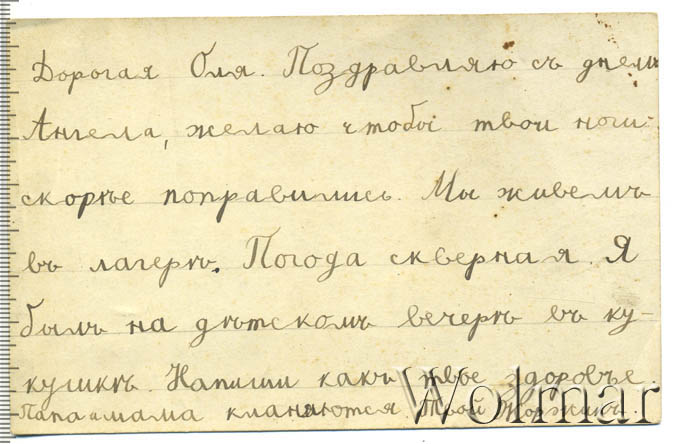 Дорогая Оля. Поздравляю съ днемъ
Ангела, желаю чтобы твои ноги
скорѣе поправились. Мы живемъ
въ лагерѣ. Погода скверная. Я
былъ на дѣтскомъ вечерѣ въ ку-
кушкѣ. Напиши какъ твое здоровье.
Папа и мама кланяются. Твой Жоржикъ.
Wolmar